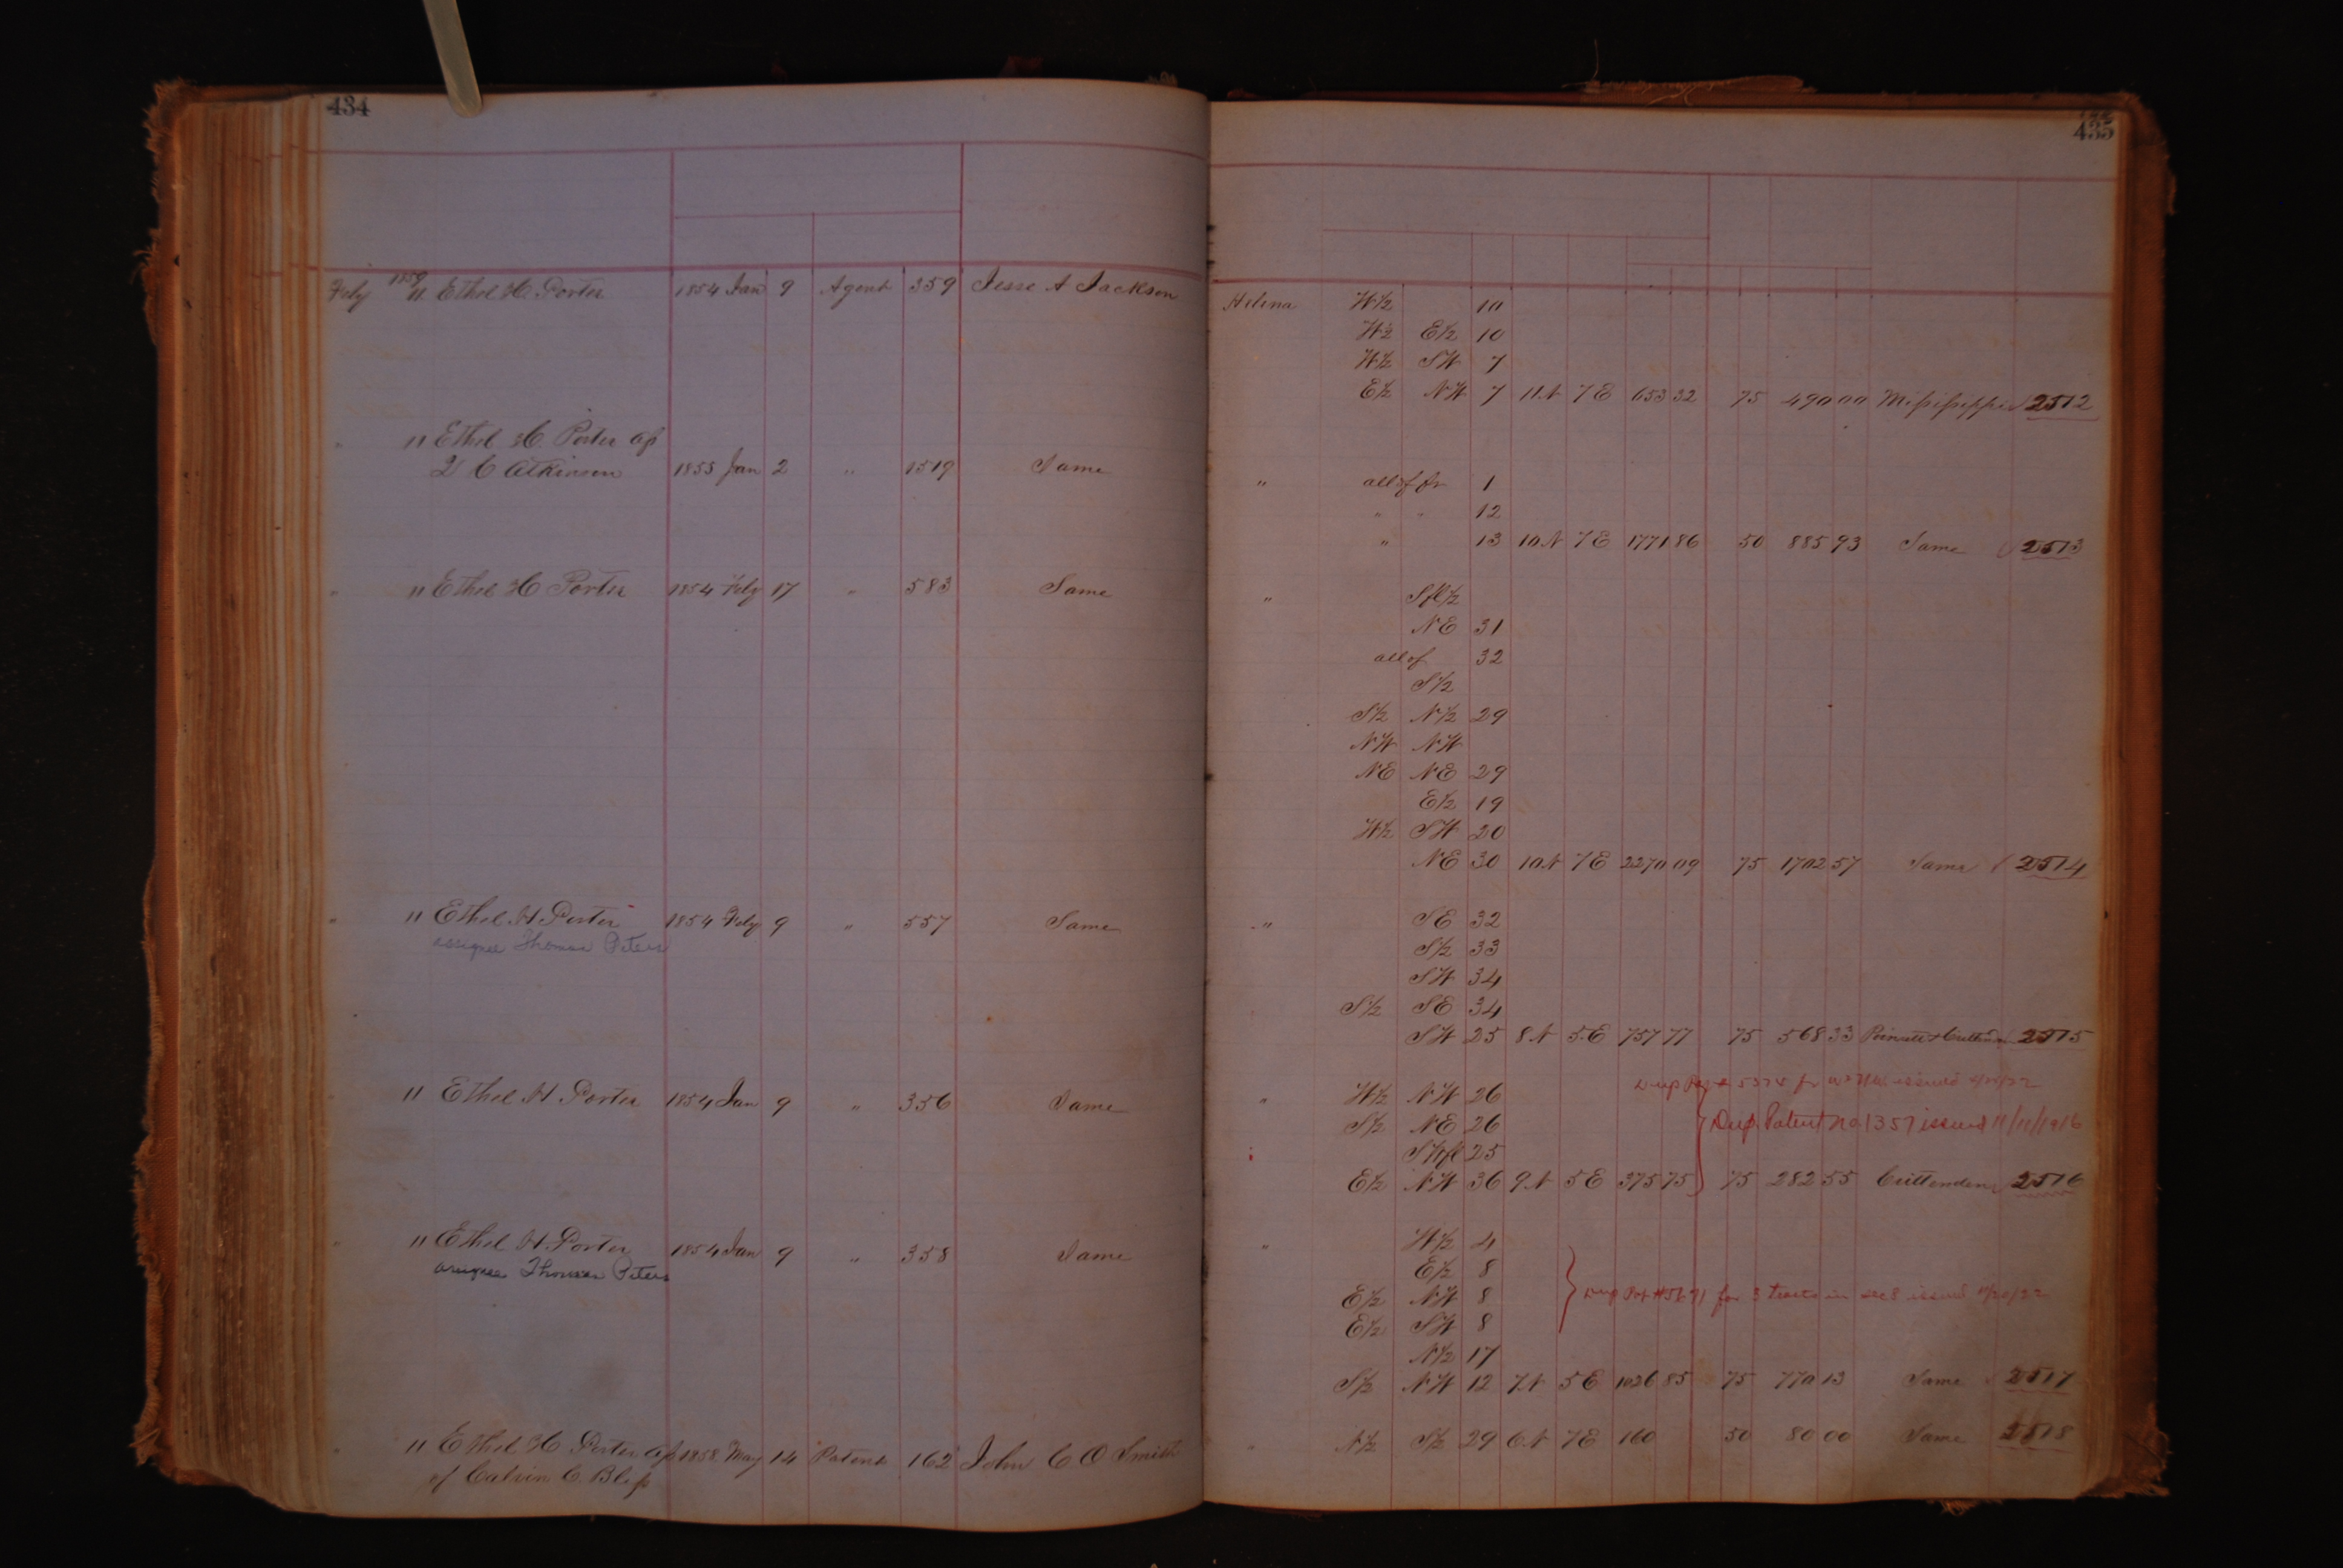 434
435
1859
Feby 11 Ethel H. Porter 1854 Jan 9 Agent 359 Jesse A Jackson Helena W½ 10
W½ E½ 10
W½ SW 7
E½ NW 7 11N 7E 653 32 75 490 00 Missisippi 2512
" 11 Ethel H. Porter as
C Atkinson 1855 Jan 2 " 1519 Same " all of fr 1
" " 12
" 13 10N 7E 1771 86 50 885 93 Same 2513
" 11 Ethel H Porter 1854 Feby 17 " 583 Same " S fl ½
NE 31
all of 32
S½
S½ N½ 29
NW NW
NE NE 29
E½ 19
W½ SW 20
NE 30 10N 7E 2270 09 75 1702 57 Same 2514
" 11 Ethel H Porter 1854 Feby 9 " 557 Same " SE 32
assignee Thomas Peters S½ 33
SW 34
S½ SE 34
SW 25 8N 5E 757 77 75 568 33 Poinsett & Crittenden 2515
Dup Pat # issued
" 11 Ethel H Porter 1854 Jan 9 " 356 Same " W½ NW 26
S½ NE 26 Dup. Patent no 1357 issued 11/11/1916
SW fl 25
E½ NW 36 9N 5E 375 75 75 282 55 Crittenden 2516
" 11 Ethel H Porter 1854 Jan 9 " 358 Same " W½ 4
assignee Thomas Peters E½ 8
E½ NW 8 Dup Pat # for 3 tracts in sec 8 issued
E½ SW 8
N½ 17
S½ NW 12 7N 5E 1026 85 75 770 13 Same 2517
" 11 Ethel H Porter as 1858 May 14 Patent 162 John C O Smith " N½ S½ 29 6N 7E 160 50 80 00 Same 2518
of Calvin C. Bliss